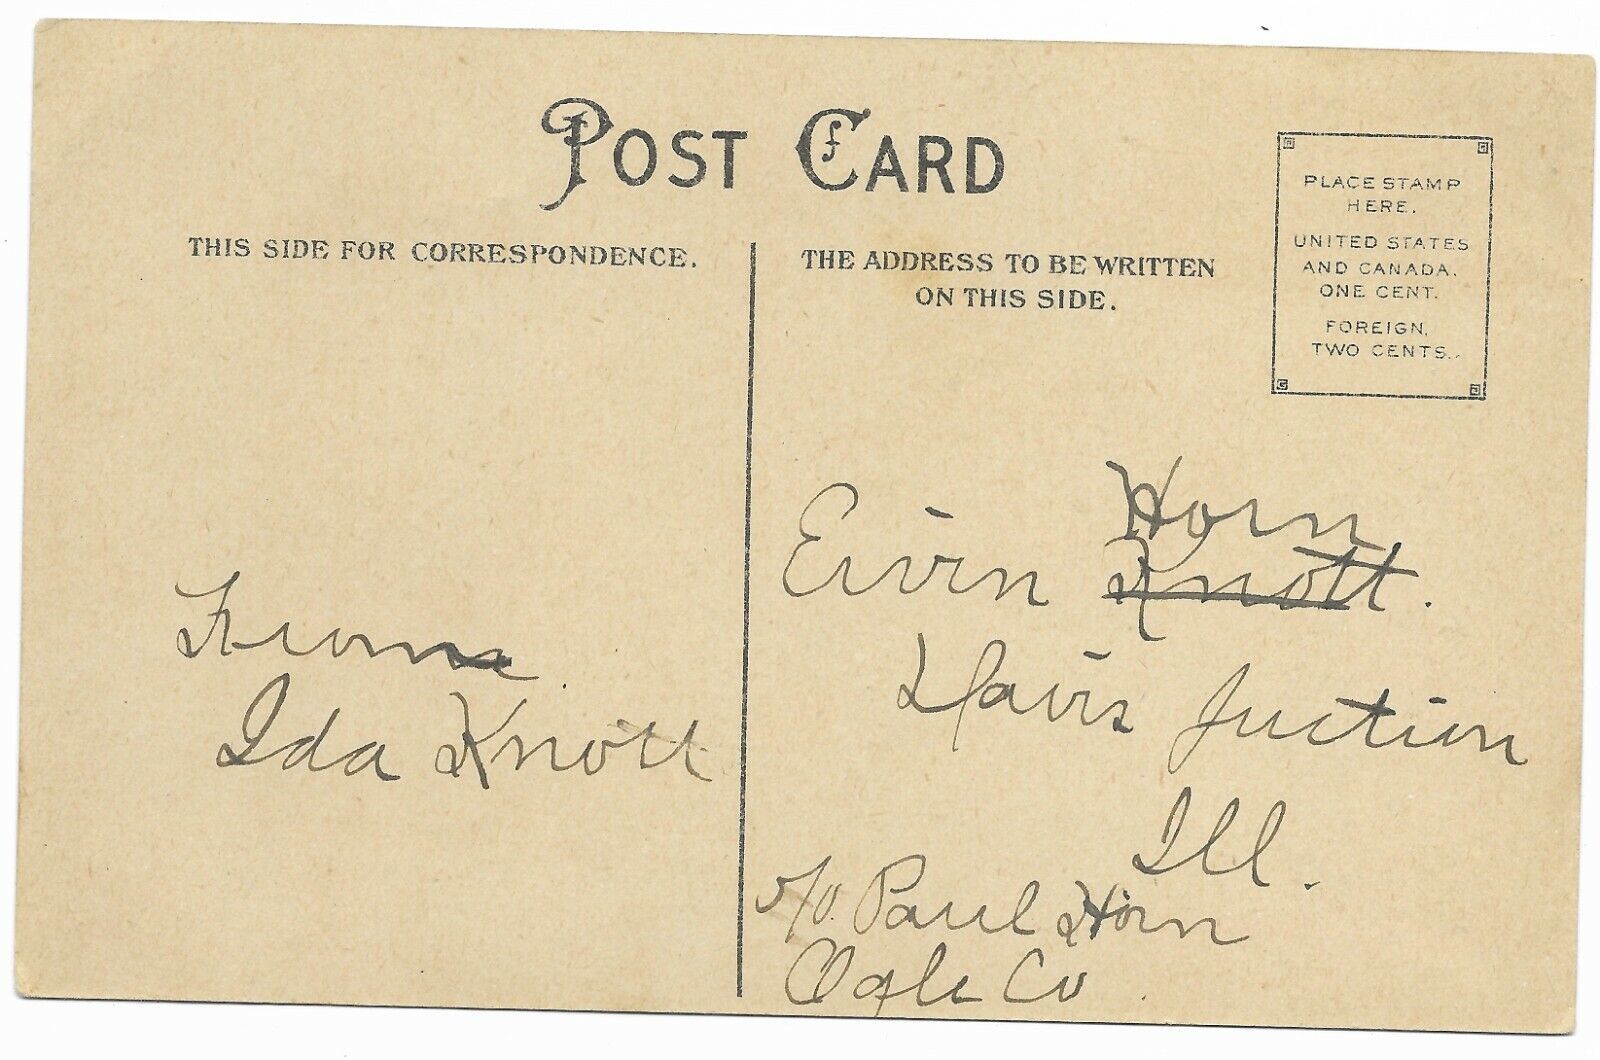 POST CARD
THIS SIDE FOR CORRESPONDENCE.
THE ADDRESS TO BE WRITTEN
ON THIS SIDE.
PLACE STAMP
HERE.
UNITED STATES
AND CANADA.
ONE CENT.
FOREIGN,
TWO CENTS.
From
Ida Knott
Horn
Ervin Knott.
Davis Juction
Ill.
c/o. Paul Horn
Ogle Co.